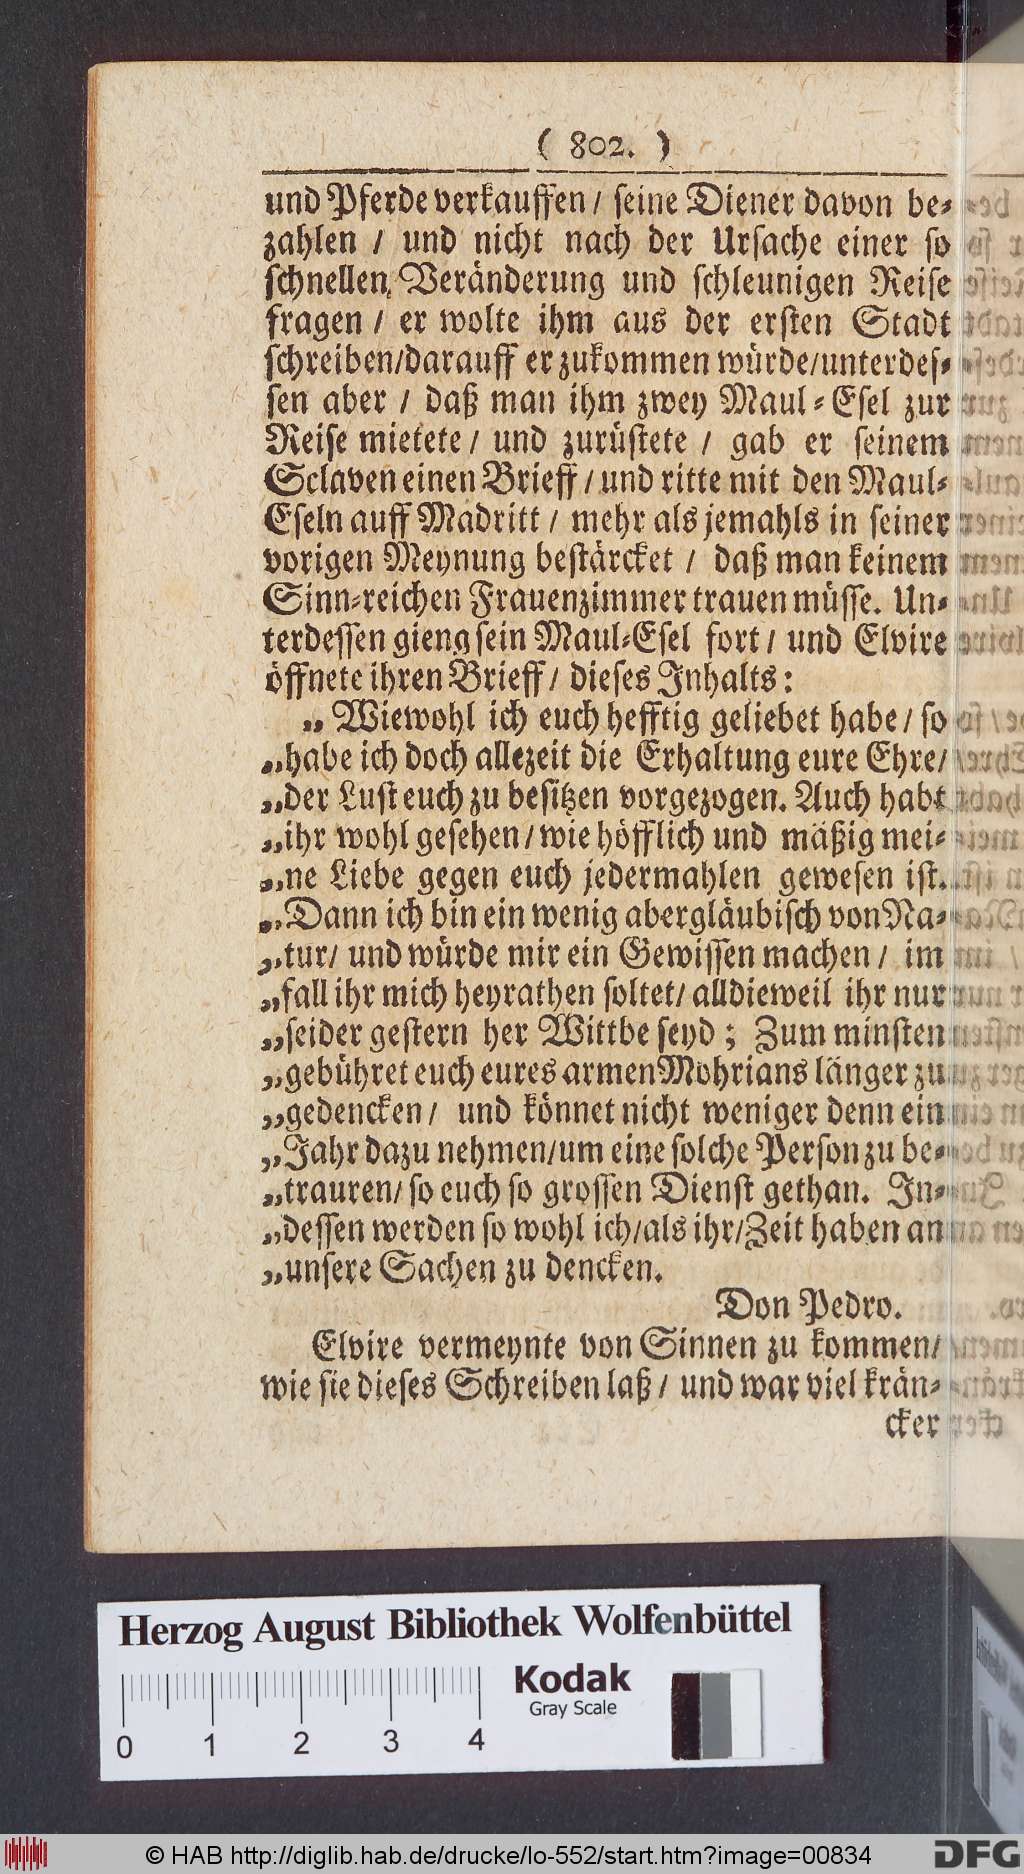 ( 802. )
und Pferde verkauffen / seine Diener davon be-
zahlen / und nicht nach der Ursache einer so
schnellen Veränderung und schleunigen Reise
fragen / er wolte ihm aus der ersten Stadt
schreiben/darauff er zukommen würde/unterdes-
sen aber / daß man ihm zwey Maul-Esel zur
Reise mietete / und zurüstete / gab er seinem
Sclaven einen Brieff / und ritte mit den Maul-
Eseln auff Madritt / mehr als jemahls in seiner
vorigen Meynung bestärcket / daß man keinem
Sinn-reichen Frauenzimmer trauen müsse. Un-
terdessen gieng sein Maul-Esel fort / und Elvire
öffnete ihren Brieff / dieses Inhalts:
„ Wiewohl ich euch hefftig geliebet habe / so
„habe ich doch allezeit die Erhaltung eure Ehre/
„der Lust euch zu besitzen vorgezogen. Auch habt
„ihr wohl gesehen / wie höfflich und mäßig mei-
„ne Liebe gegen euch jedermahlen gewesen ist.
„Dann ich bin ein wenig abergläubisch von Na-
„tur/ und würde mir ein Gewissen machen / im
„fall ihr mich heyrathen soltet/ alldieweil ihr nur
„seider gestern her Wittbe seyd ; Zum minsten
„gebühret euch eures armen Mohrians länger zu
„gedencken / und könnet nicht weniger denn ein
„Jahr dazu nehmen/um eine solche Person zu be-
„trauren/ so euch so grossen Dienst gethan. In-
„dessen werden so wohl ich/als ihr/Zeit haben an
„unsere Sachen zu dencken.
Don Pedro.
Elvire vermeynte von Sinnen zu kommen/
wie sie dieses Schreiben laß / und war viel krän-
cker
Herzog August Bibliothek Wolfenbüttel
Kodak
Gray Scale
0 1 2 3 4
© HAB http://diglib.hab.de/drucke/lo-552/start.htm?image=00834
DFG